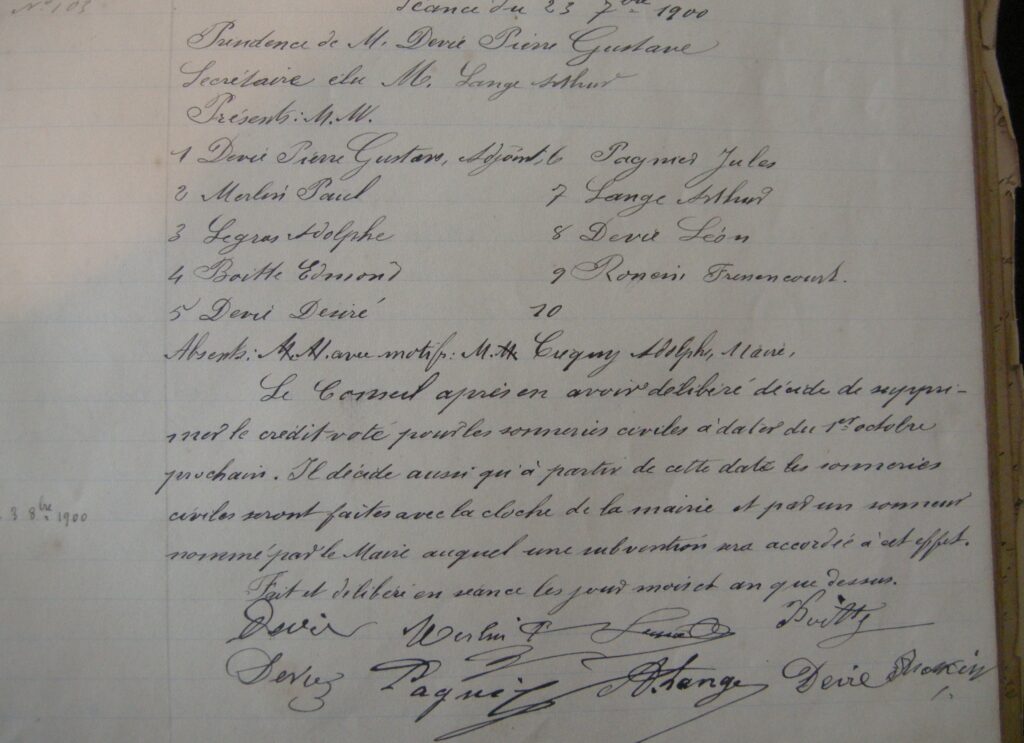 N° 103
Séance du 23 7bre 1900
Présidence de M. Devie Pierre Gustave
Secrétaire élu M. Lange Arthur
Présents: M.M.
1 Devie Pierre Gustave, Adjoint, 6 Pagnier Jules
2 Merlin Paul 7 Lange Arthur
3 Legros Adolphe 8 Devie Léon
4 Boitte Edmond 9 Roncin
5 Devie Desiré 10
Absents: M.M. avec motifs: M. Cuguy Adolphe, Maire.
Le Conseil après en avoir délibéré décide de suppri-
mer le crédit voté pour les sonneries civiles à dater du 1er octobre
prochain. Il décide aussi qu'à partir de cette date les sonneries
civiles seront faites avec la cloche de la mairie et par un sonneur
3 8bre 1900
nommé par le Maire auquel une subvention sera accordée à cet effet.
Fait et délibéré en séance les jour mois et an que dessus.
Devie Merlin P Boitte
Pagnie A. Lange Devie